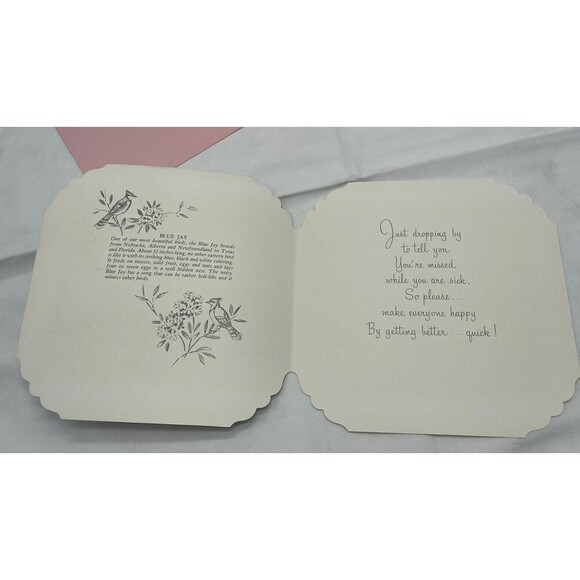 BLUE JAY
One of our most beautiful birds, the Blue Jay breeds
from Nebraska, Alberta and Newfoundland to Texas
and Florida. About 12 inches long, no other eastern bird
is like it with its striking blue, black and white coloring.
It feeds on insects, wild fruit, eggs and nuts and lays
four to seven eggs in a well hidden nest. The noisy
Blue Jay has a song that can be rather bell-like and it
mimics other birds.
Just dropping by
to tell you
You're missed
while you are sick,
So please...
make everyone happy
By getting better... quick!